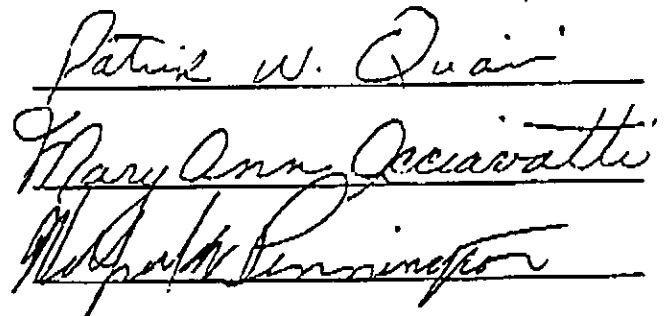 Patrick W. Quain
Mary Ann Acciavatti
Pennington